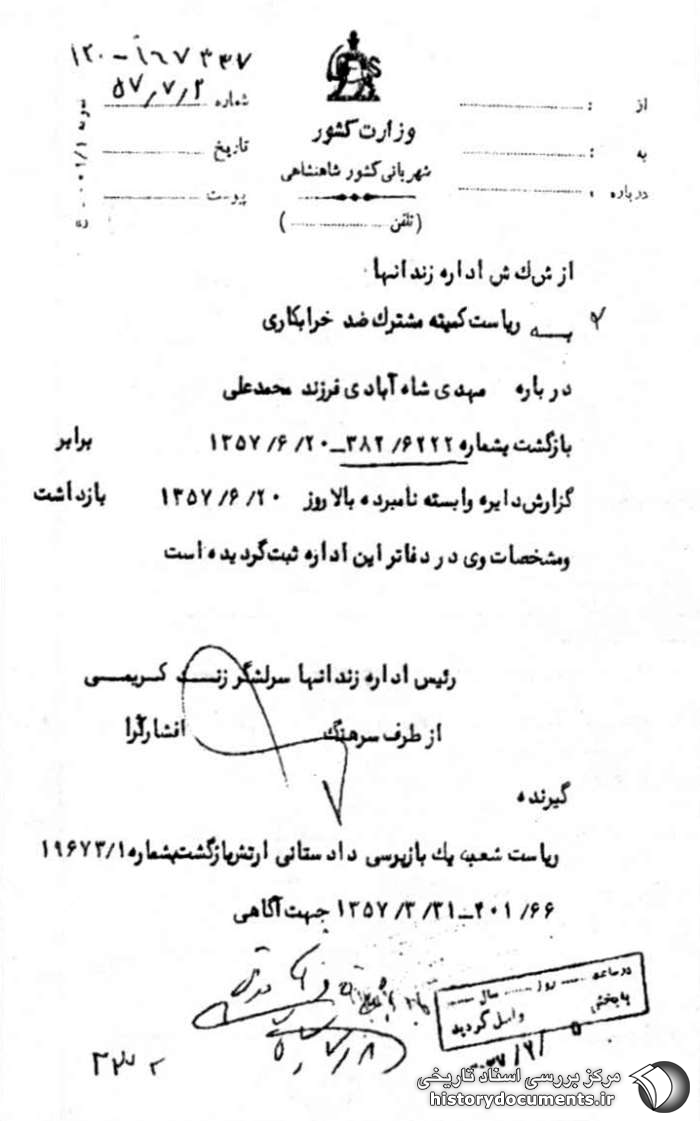 ۱۲۰-۱۶۷۳۳۷
شماره ۵۷,۷,۲
تاریخ
پیوست
وزارت کشور
شهربانی کشور شاهنشاهی
(تلفن ........)
از :
به :
درباره :
از ش ک ش اداره زندانها
به ریاست کمیته مشترک ضد خرابکاری
درباره مهدی شاه آبادی فرزند محمدعلی
بازگشت بشماره ۳۸۲/۶۲۲۲ــ۱۳۵۷/۶/۲۰ برابر
گزارش دایره وابسته نامبرده بالا روز ۱۳۵۷/۶/۲۰ بازداشت
ومشخصات وی در دفاتر این اداره ثبت گردیده است
رئیس اداره زندانها سرلشگر زنـــت کـریمـــی
از طرف سرهنگ افشارآرا
گیرنده
ریاست شعبه یک بازپرسی دادستانی ارتش بازگشت بشماره ۱۹۶۷۳/۱
۴۰۱/۶۶ــ۱۳۵۷/۳/۳۱ جهت آگاهی
در ساعت ...... روز ...... سال ......
بابخش واصل گردید
مرکز بررسی اسناد تاریخی
historydocuments.ir